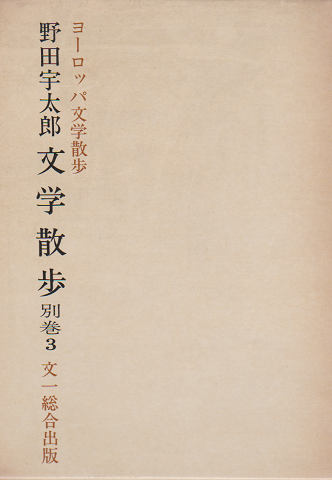 ヨーロッパ文学散歩
野田宇太郎文学散歩別巻3 文一総合出版